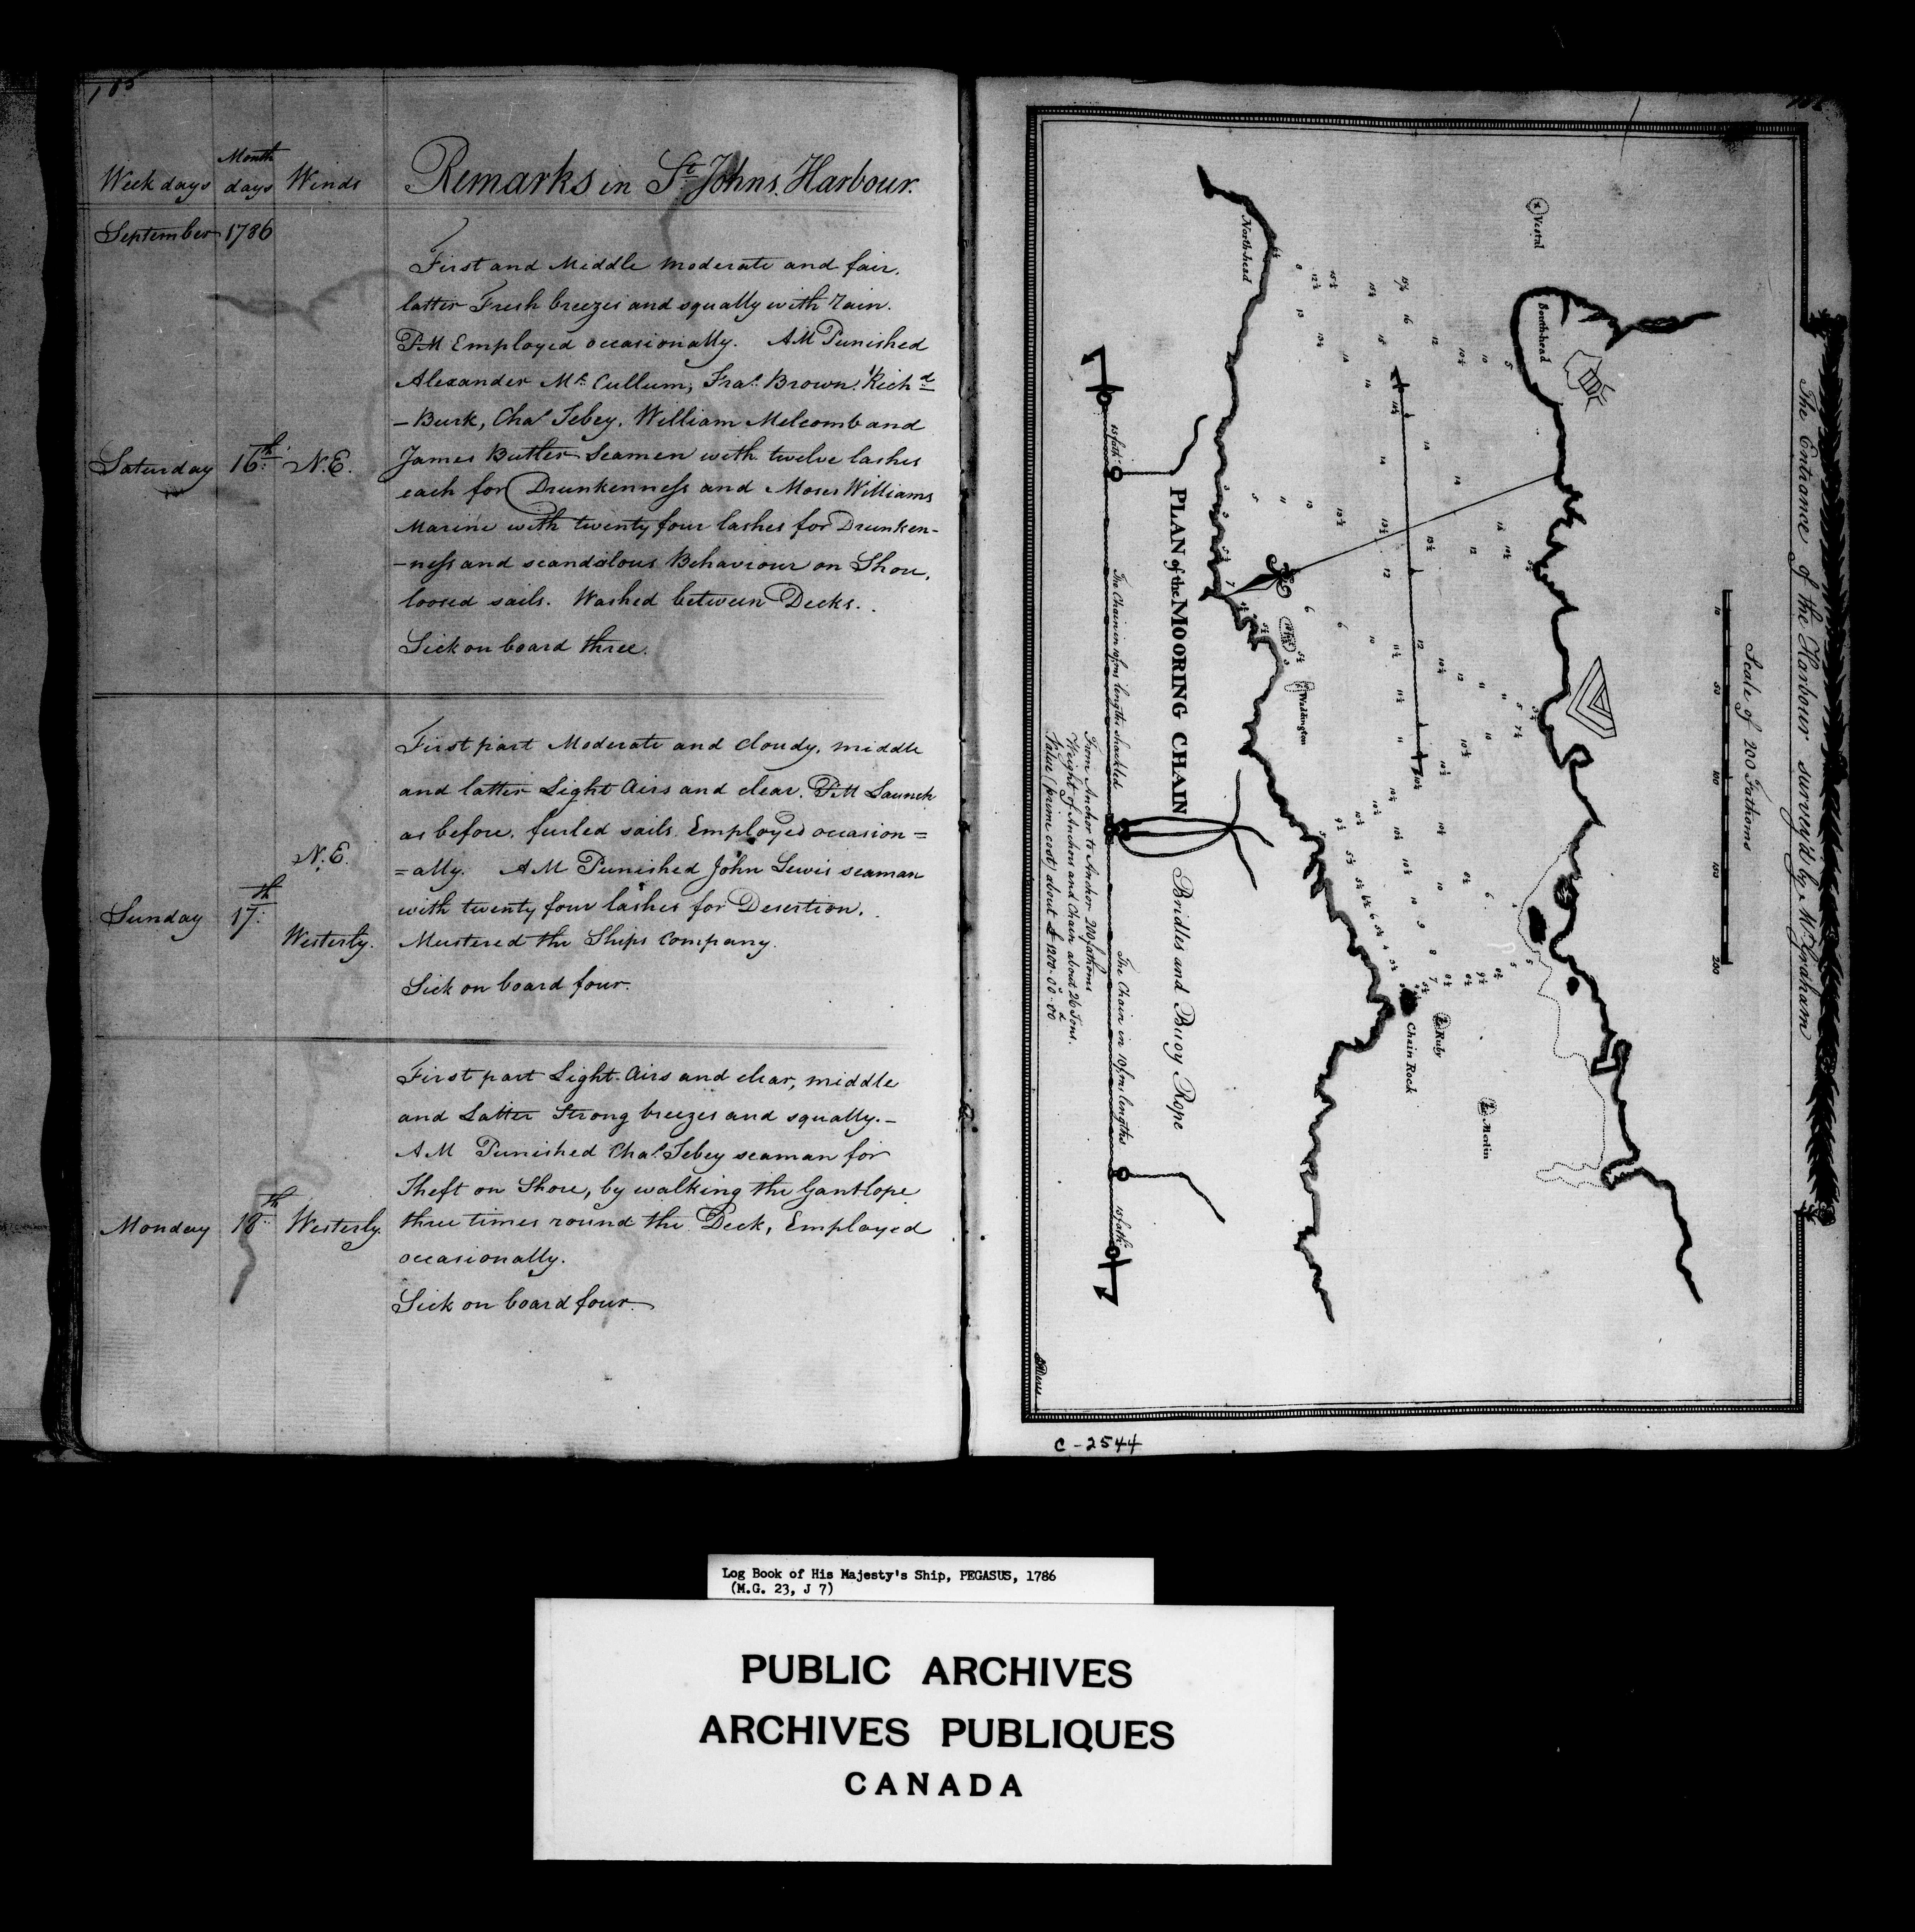 105
Week days Month days Winds Remarks in St Johns Harbour.
September 1786
First and Middle moderate and fair,
latter Fresh breezes and squally with rain.
PM Employed occasionally. AM Punished
Alexander Mc Cullum, Fras Brown, Richd
- Burk, Chas Tebey, William Melcomb and
Saturday 16th N.E. James Butler Seamen with twelve lashes
each for Drunkenness and Moses Williams
Marine with twenty four lashes for Drunken-
-ness and scandalous Behaviour on Shore,
loosed sails. Washed between Decks.
Sick on board three.
First part Moderate and cloudy, middle
and latter Light Airs and clear. PM Launch
as before, furled sails. Employed occasion=
N.E.
=ally. AM Punished John Lewis seaman
Sunday 17th with twenty four lashes for Desertion.
Westerly. Mustered the Ships Company.
Sick on board four.
First part Light Airs and clear, middle
and Latter Strong breezes and squally.-
AM Punished Chas Tebey seaman for
Theft on Shore, by walking the Gantlope
Monday 18th Westerly. three times round the Deck, Employed
occasionally.
Sick on board four.
106
The Entrance of the Harbour survey'd by
Scale of 200 Fathoms
10 50 100 150 200
Vestal
Southhead
Northhead
Waddington
Ruby
Chain Rock
Merlin
PLAN of the MOORING CHAIN Bridles and Buoy Rope
15 fath.
The Chain in 10 fms lengths shackled
The Chain in 10 fms lengths
15 fath.
From Anchor to Anchor 200 fathoms
Weight of Anchors and Chain about 26 Tons.
Value (prime cost) about £ 1200-00-00
C-2544
Log Book of His Majesty's Ship, PEGASUS, 1786
(M.G. 23, J 7)
PUBLIC ARCHIVES
ARCHIVES PUBLIQUES
CANADA